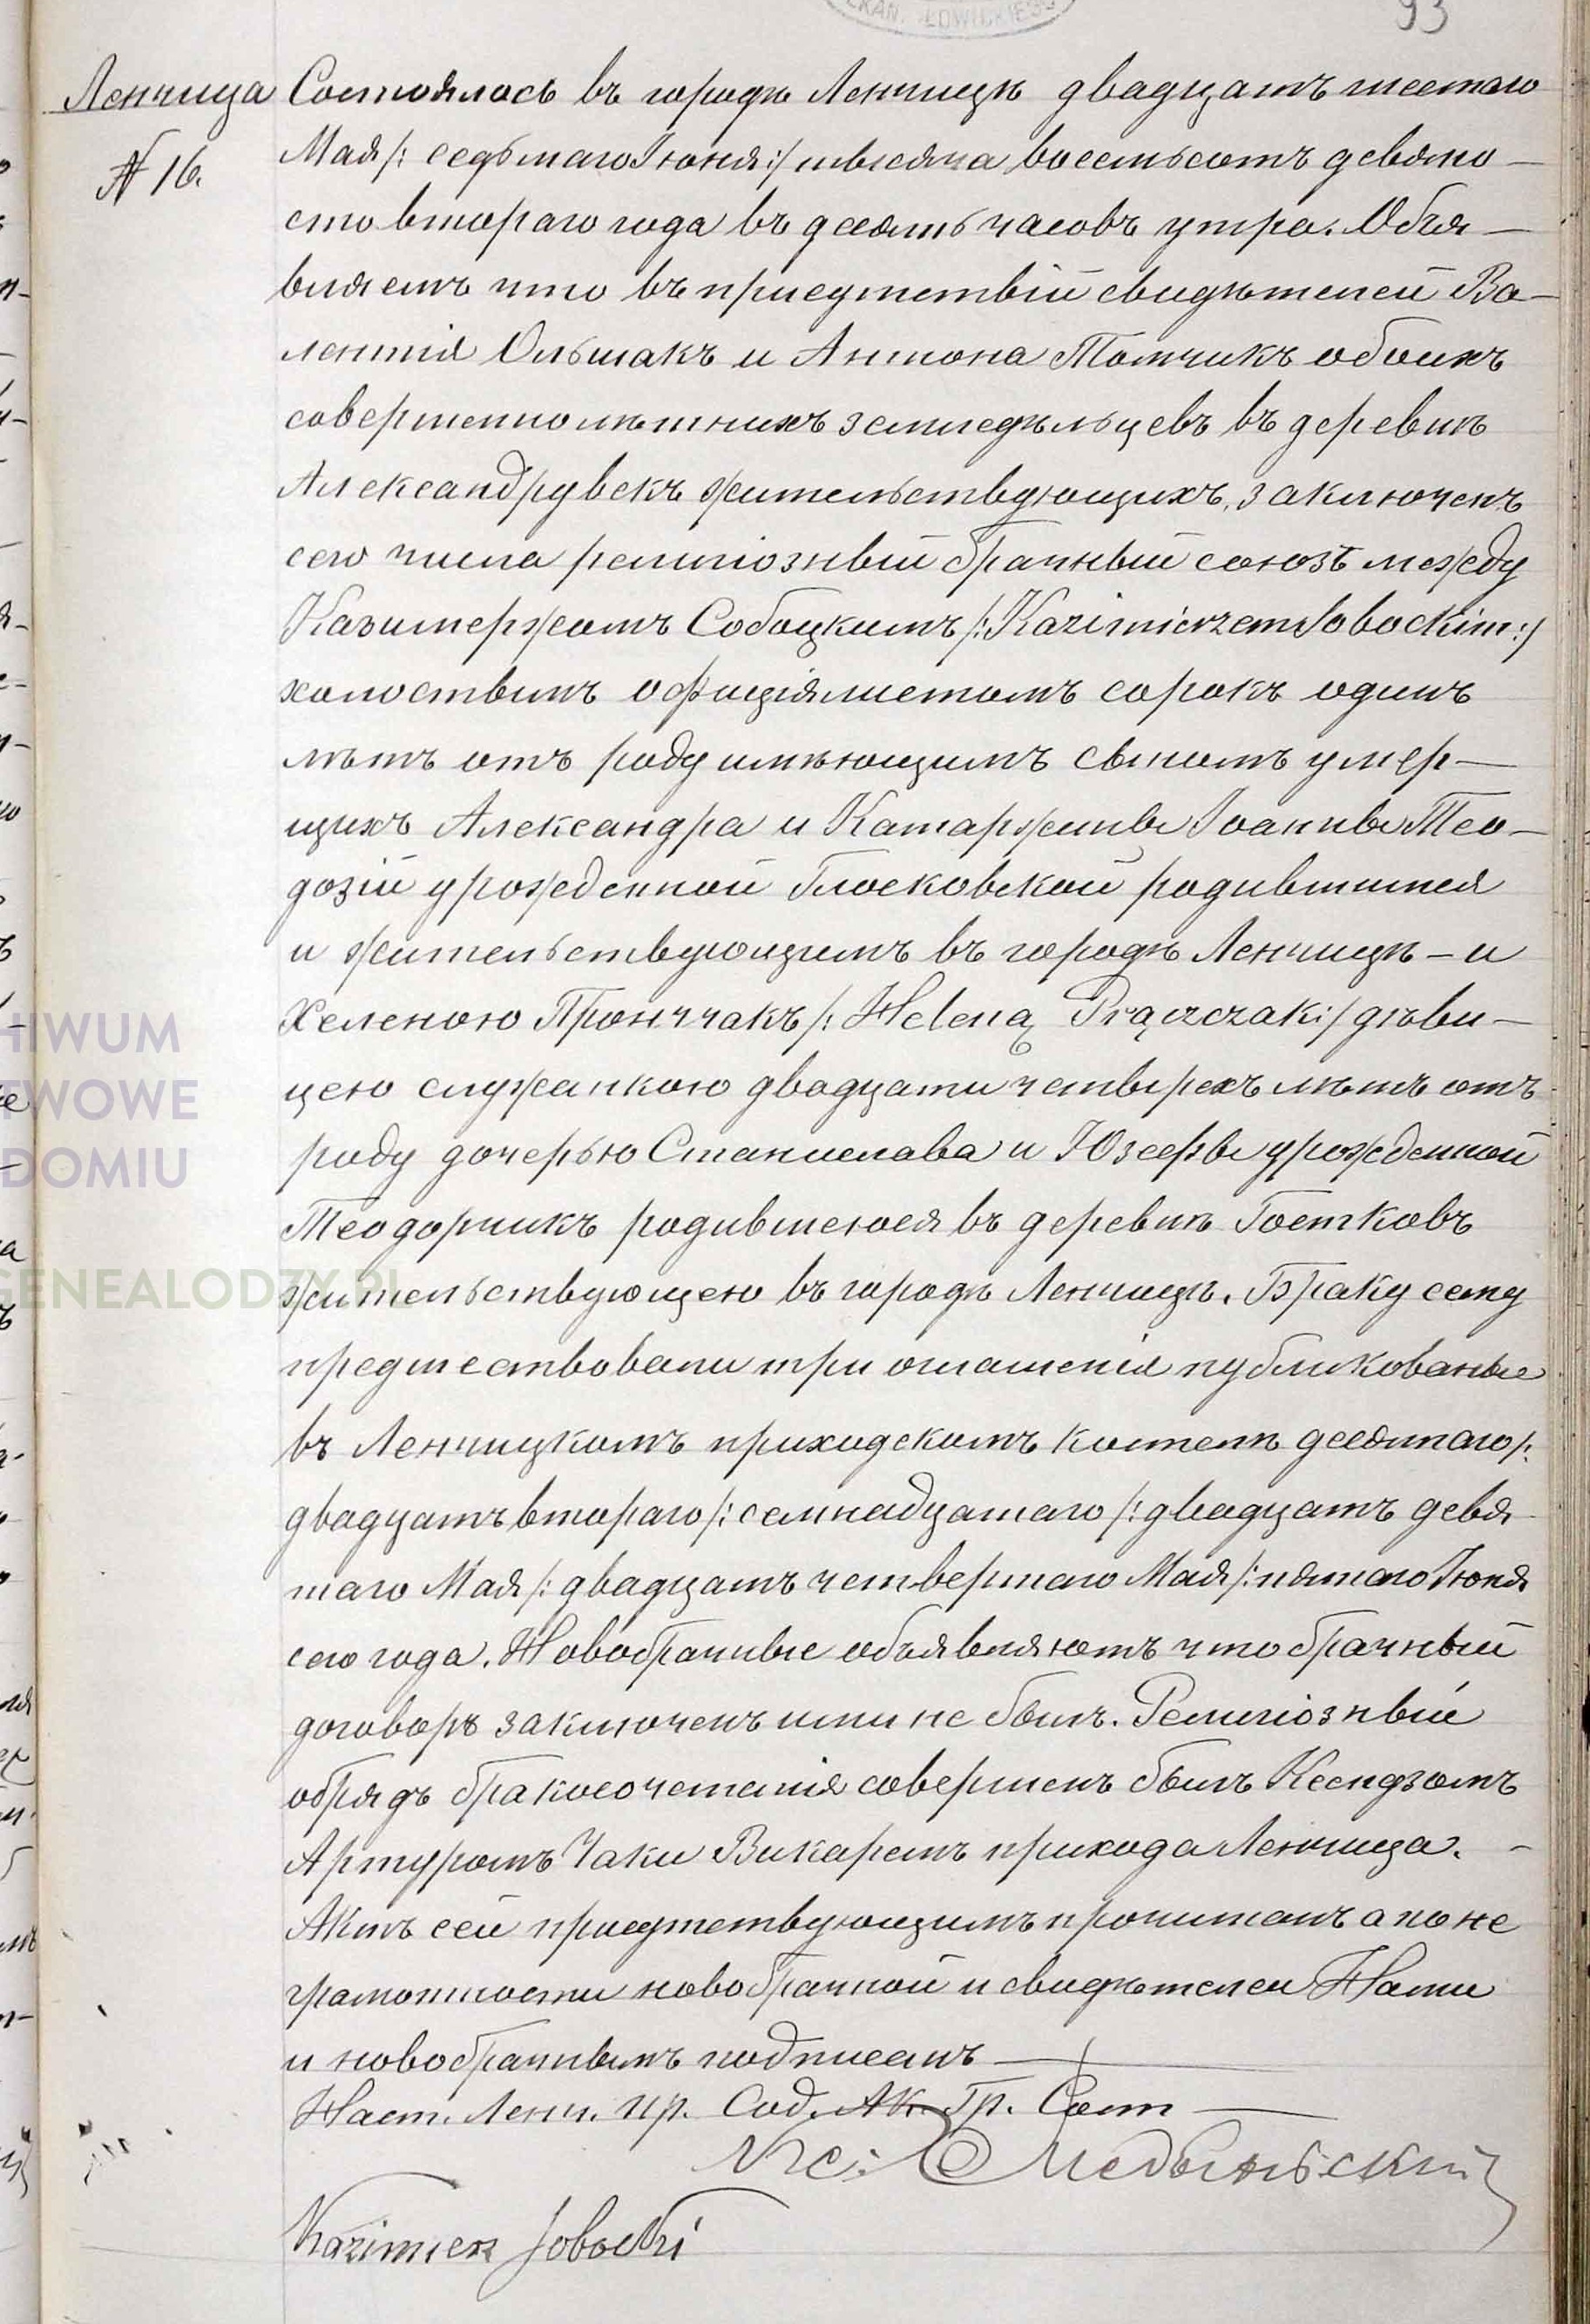 93
Ленчица
№ 16.
Состоялось въ городѣ Ленчицѣ двадцатъ шестаго
Мая /: седьмаго Іюня :/ тысяча восемьсотъ девяно-
сто втораго года въ десять часовъ утра. Объя-
вляемъ что въ присутствіи свидѣтелей Ва-
лентія Ольшакъ и Антона Томчикъ обоихъ
совершеннолѣтнихъ земледѣльцевъ въ деревнѣ
Александрувекъ жительствующихъ, заключенъ
сего числа религіозный брачный союзъ между
Казимержомъ Собоцкимъ /: Kazimierzem Sobockim :/
холостымъ офиціялистомъ сорокъ одинъ
лѣтъ отъ роду имѣющимъ сыномъ умер-
щихъ Александра и Катаржины Іоанны Тео-
дозій урожденной Глосковской родившимся
и жительствующимъ въ городѣ Ленчицѣ - и
Хеленою Прончакъ /: Heleną Prączczak :/ дѣви-
цею служанкою двадцати четырехъ лѣтъ отъ
роду дочерью Станислава и Юзефы урожденной
Теодорчикъ родившеюся въ деревнѣ Гостковъ
жительствующею въ городѣ Ленчицѣ. Браку сему
предшествовали три оглашенія публикованые
въ Ленчицкомъ приходскомъ костелѣ десятаго /:
двадцатъ втораго /: семнадцатаго /: двадцатъ девя
таго Мая /: двадцатъ четвертаго Мая /: пятаго Іюня
сего года. Новобрачные объявляютъ что брачный
договоръ заключенъ ими не былъ. Религіозный
обрядъ бракосочетанія совершенъ былъ Ксендзомъ
Артуромъ Чаки Викаремъ прихода Ленчица. -
Актъ сей присутствующимъ прочитанъ а по не
грамотности новобрачной и свидѣтелей Нами
и новобрачнымъ подписанъ
Наст. Ленч. пр. Сод. Ак. Гр. Сост
Кс: Медыньскій
Kazimierz Sobocki
HIWUM
WOWE
DOMIU
GENEALODZY.PL